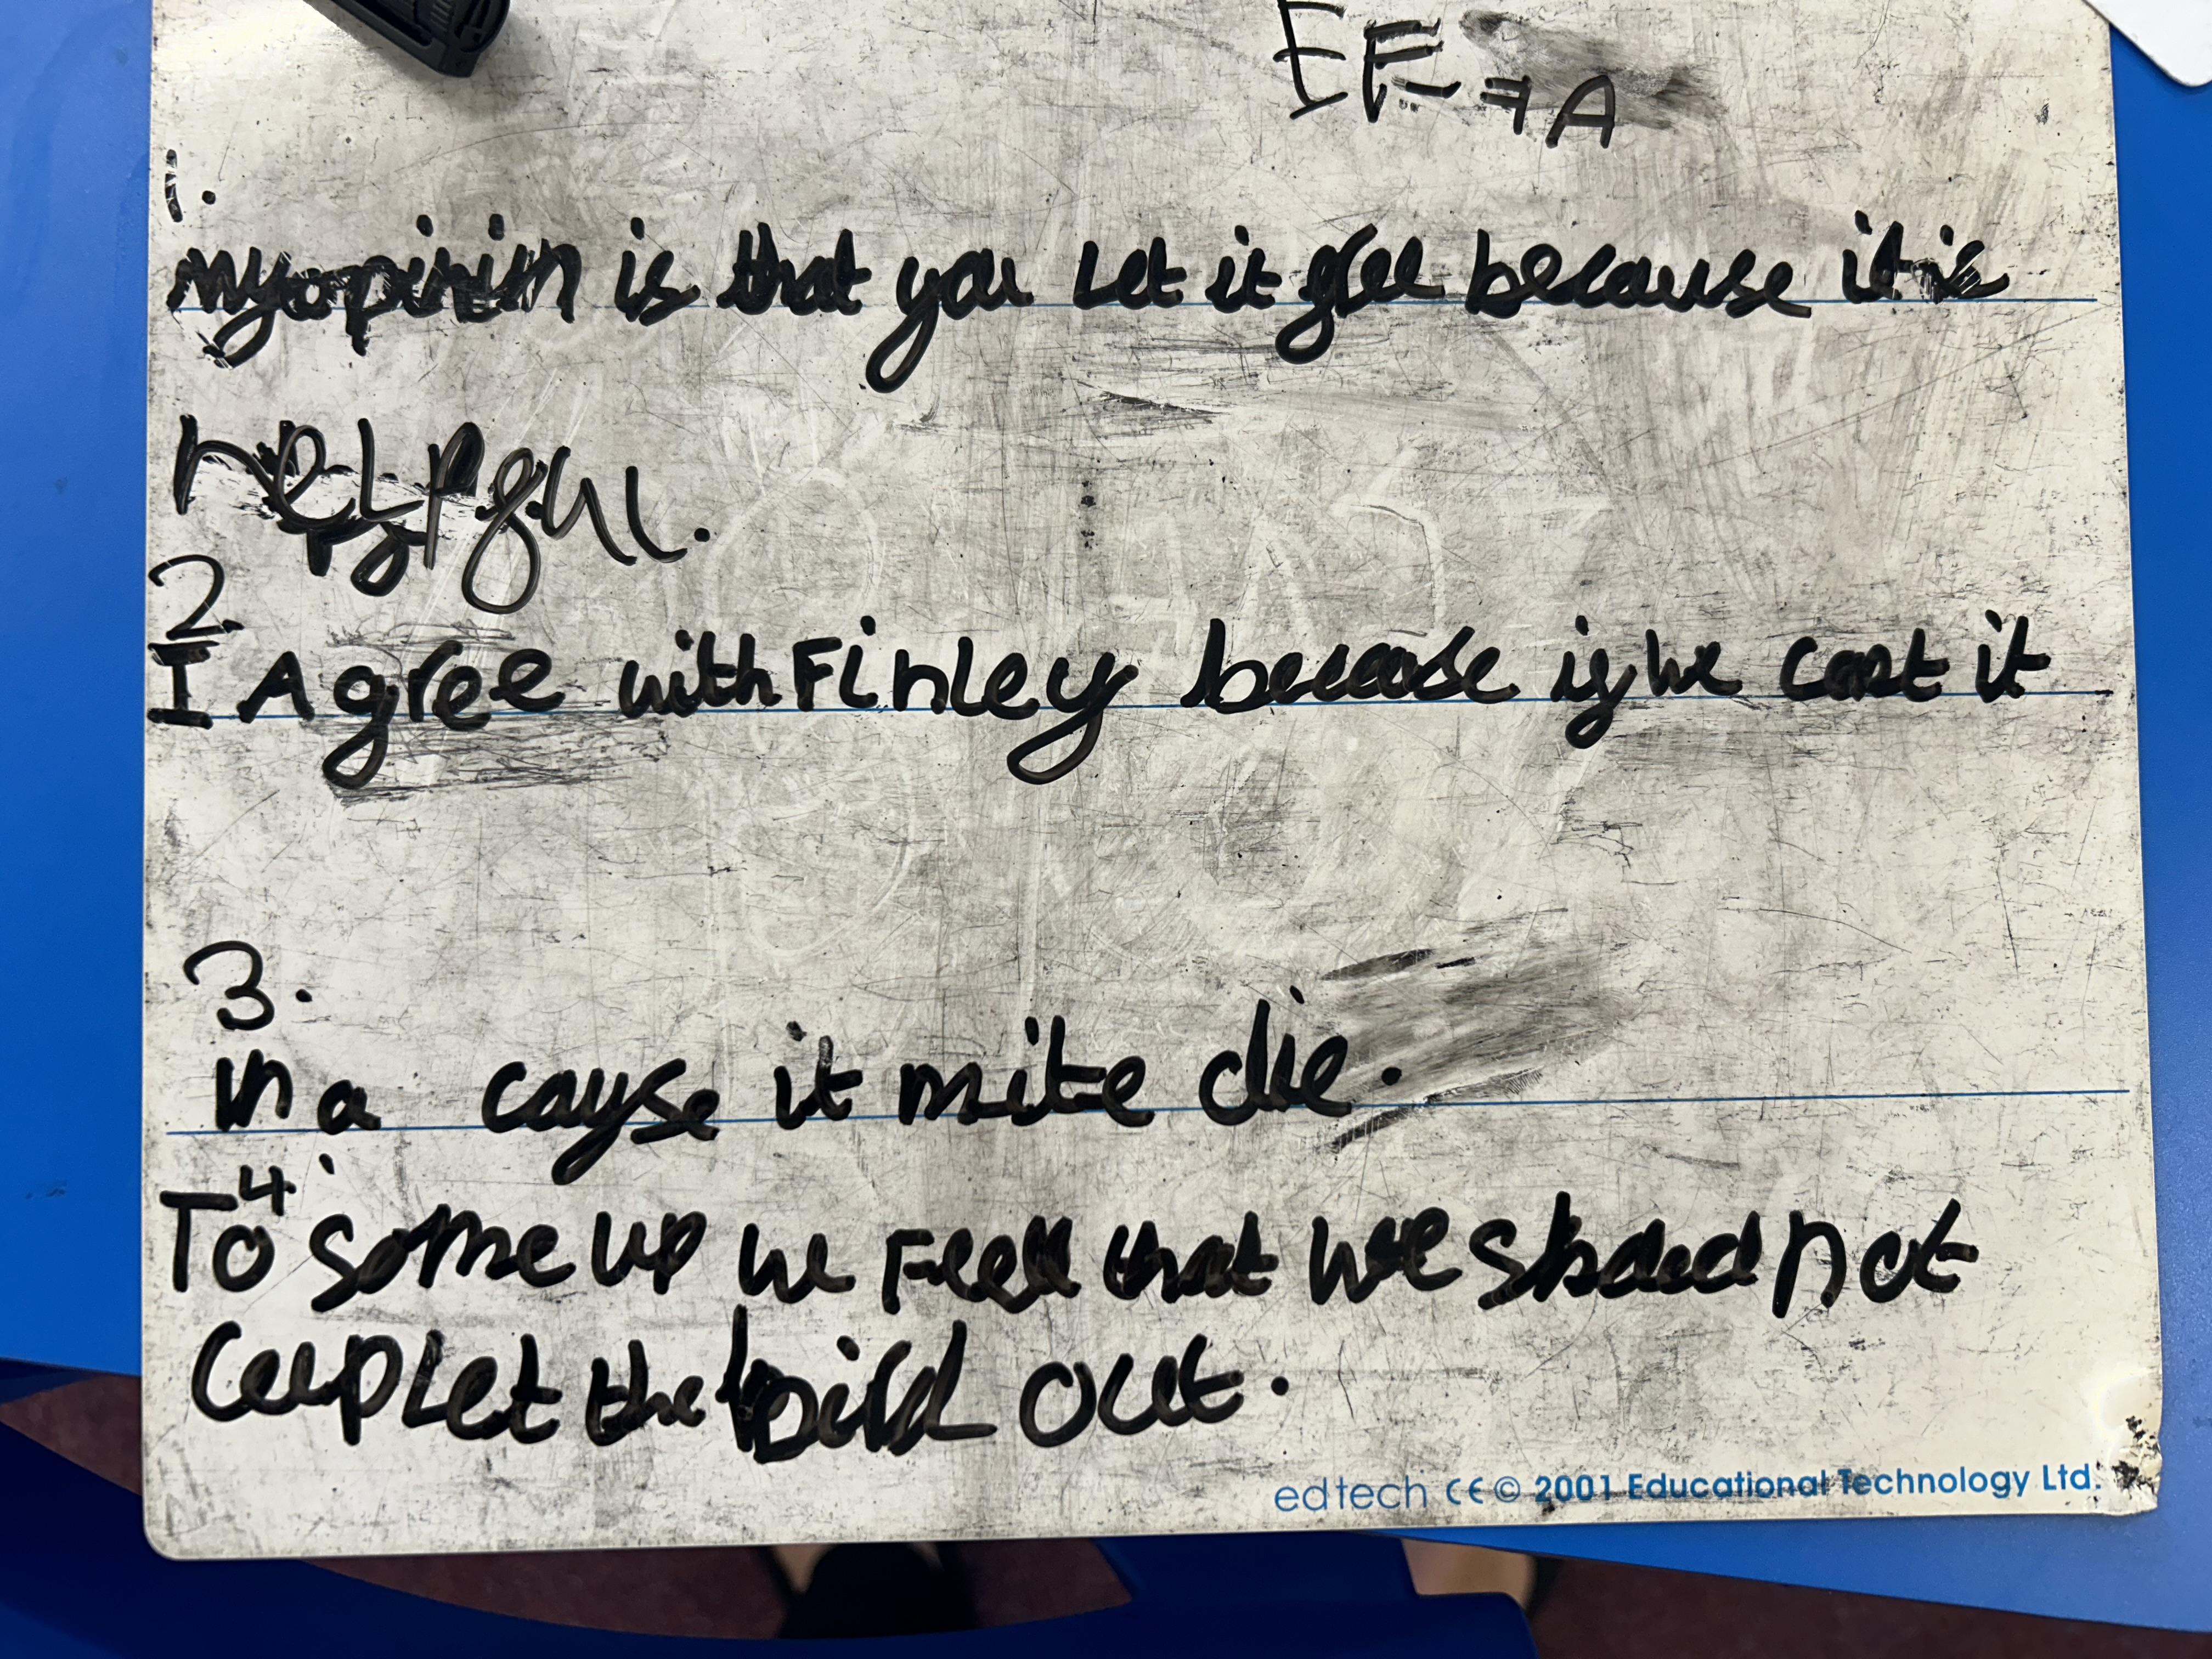 1.
my opinion is that you Let it free because it is
helpful.
2
I Agree with Finley because if we cant it
3.
in a cayse it mite die.
4.
To some up we Feell that we shoud not
Let the bird out.
edtech CE © 2001 Educational Technology Ltd.